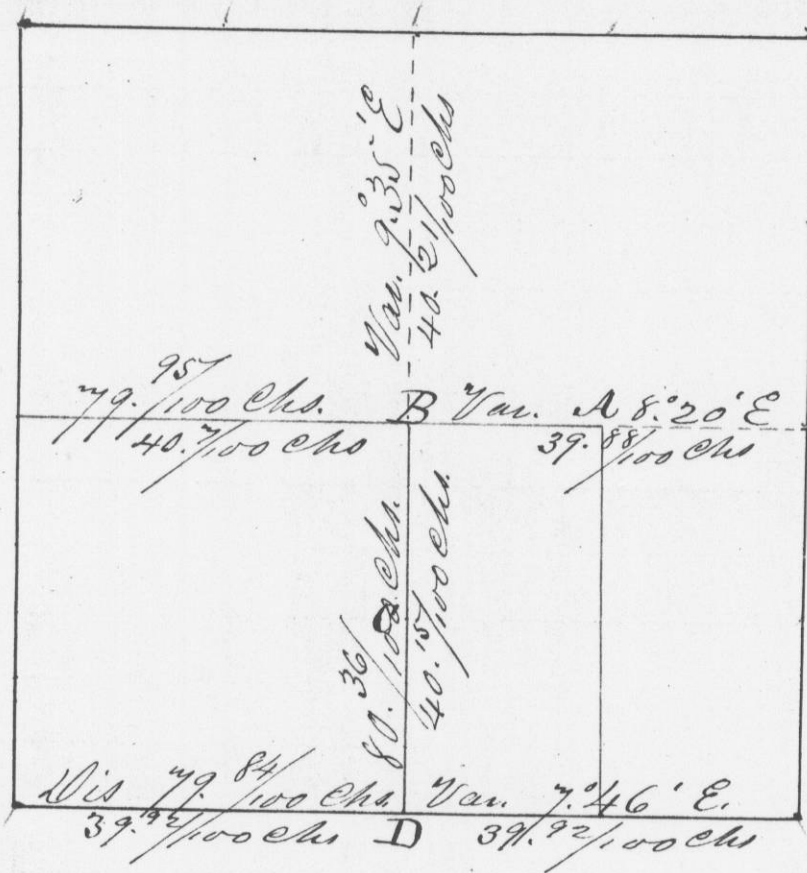 Var. 9.°35' E
40. 21/100 Chs
79. 95/100 Chs. B Var. A 8.°20' E
40. 7/100 Chs 39. 88/100 Chs
80. 36/100 Chs.
40. 15/100 Chs.
Dis 79. 84/100 Chs. Var. 7.°46' E.
39. 92/100 Chs D 39. 92/100 Chs